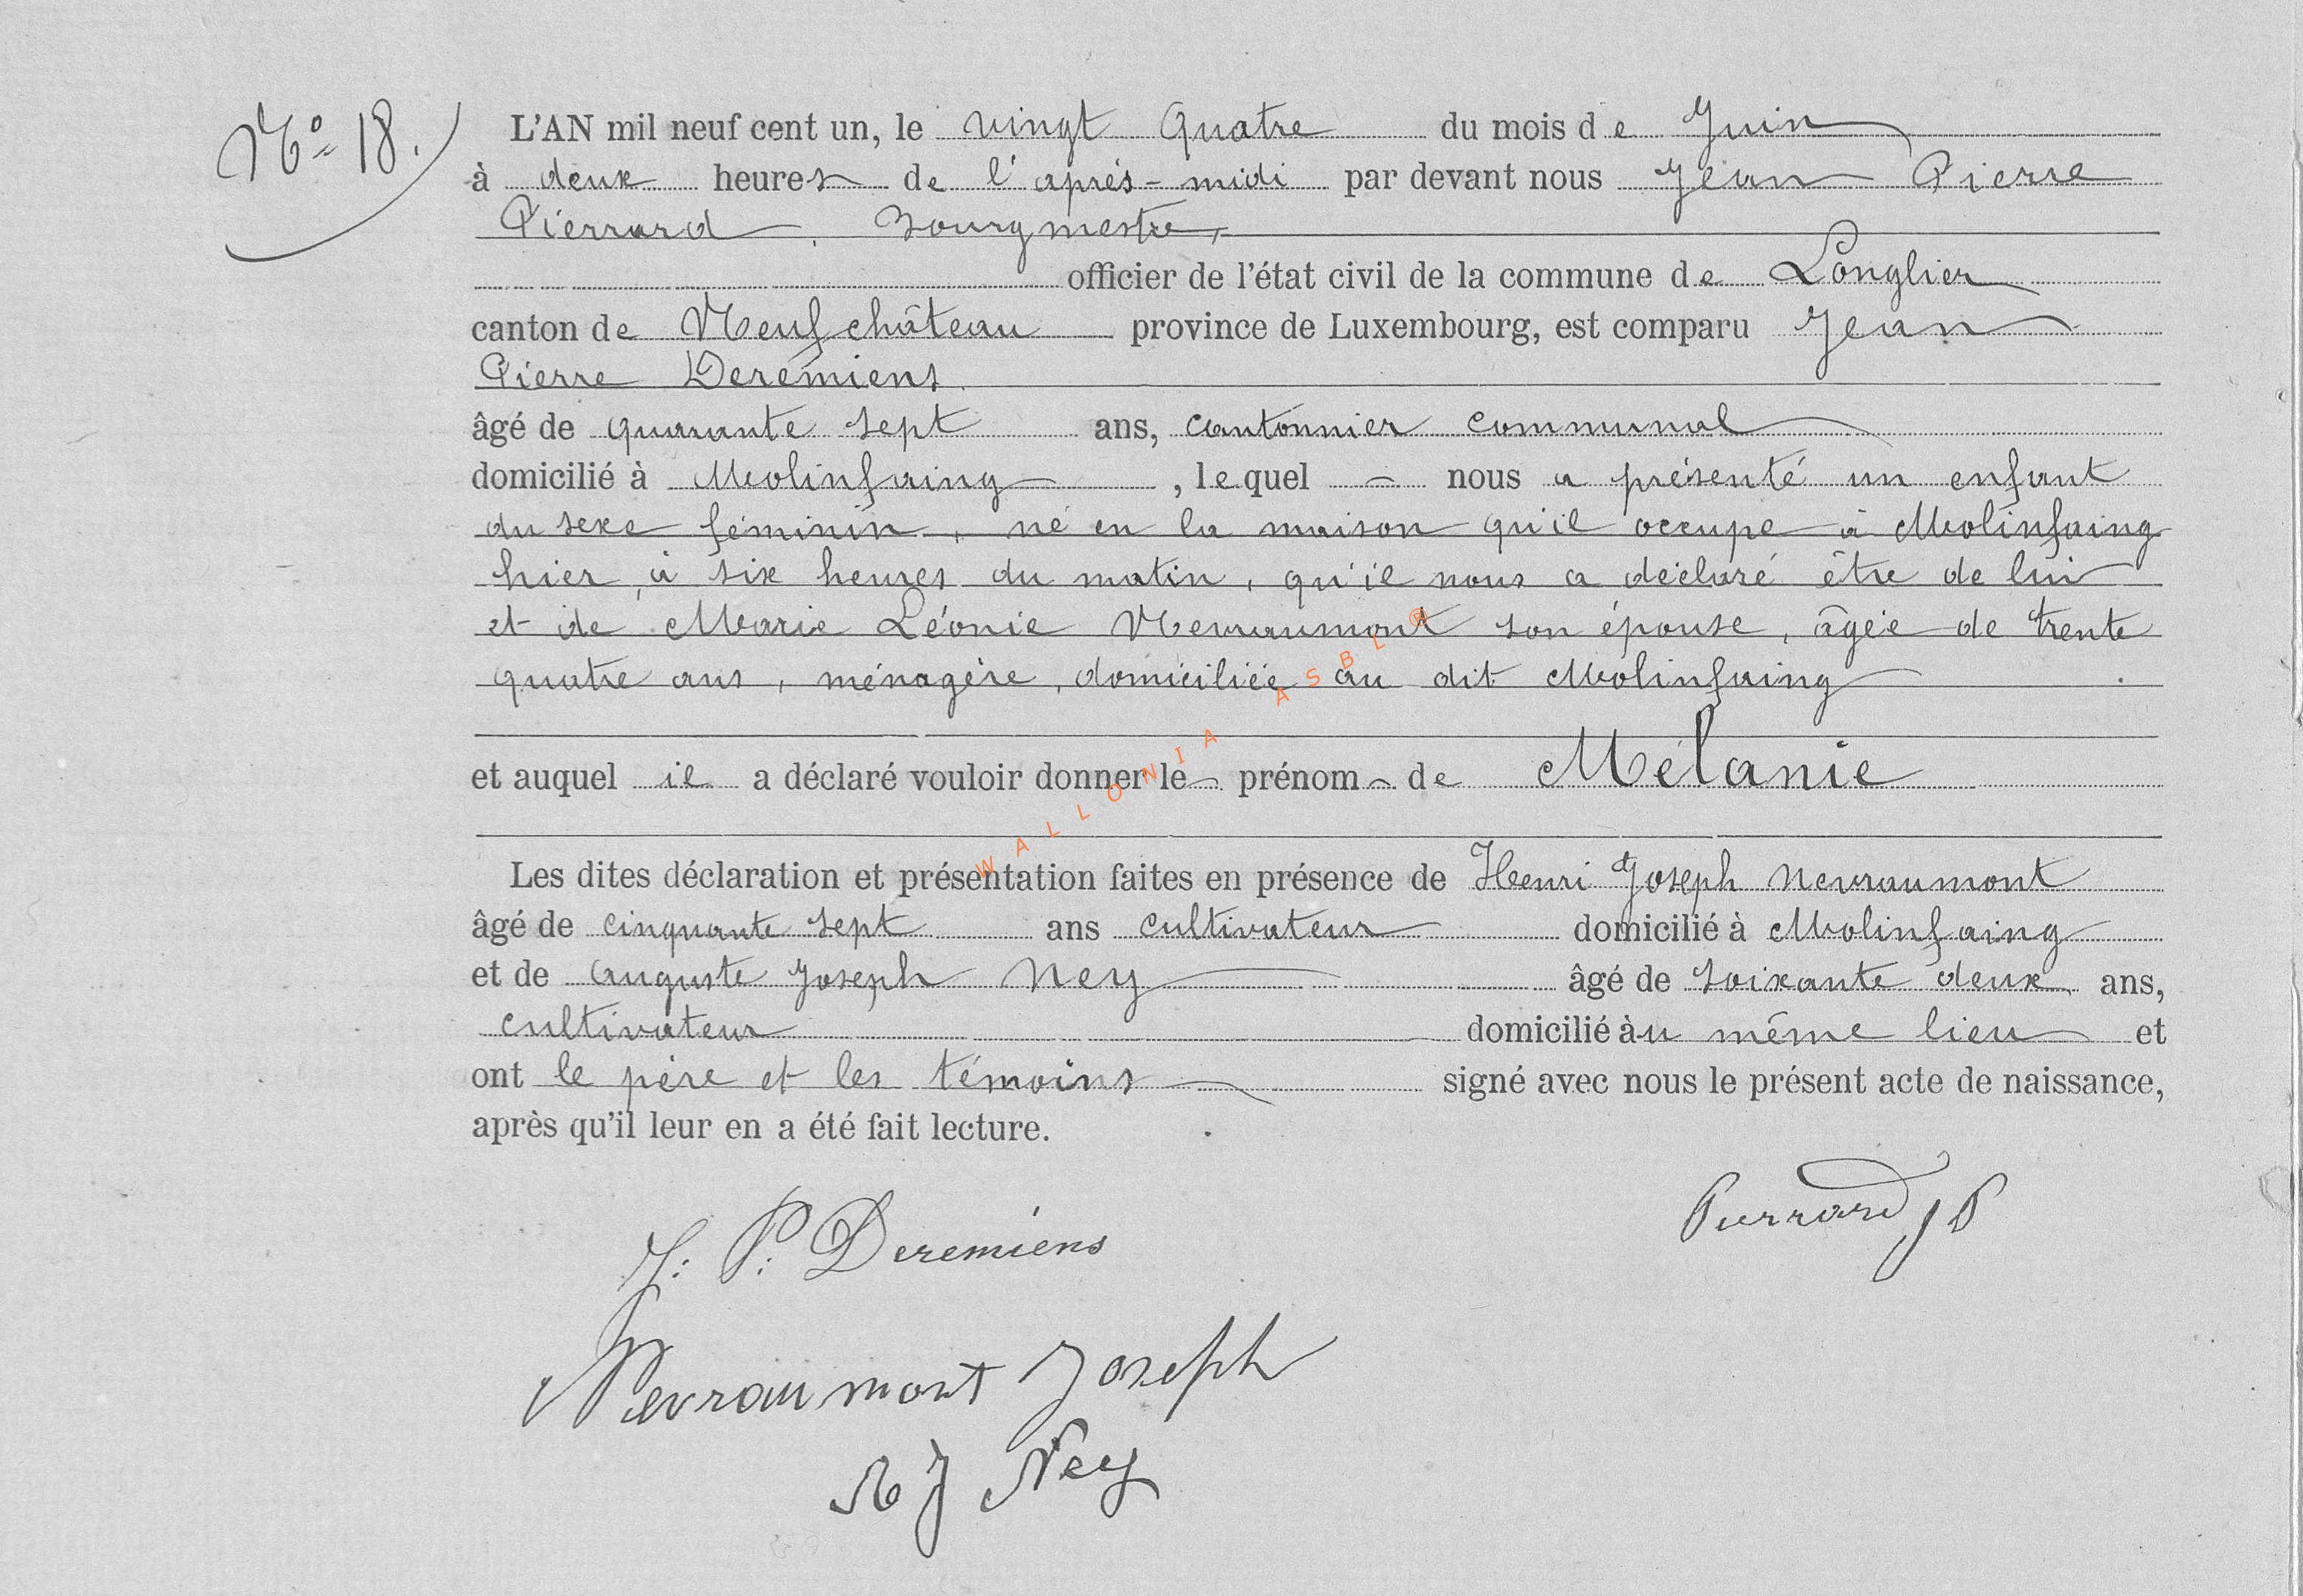 N° 18.
L'AN mil neuf cent un, le vingt quatre du mois de Juin
à deux heures de l'après-midi par devant nous Jean Pierre
Pierrard, Bourgmestre,
officier de l'état civil de la commune de Longlier
canton de Neufchâteau province de Luxembourg, est comparu Jean
Pierre Deremiens
âgé de quarante sept ans, cantonnier communal
domicilié à Molinfaing, lequel nous a présenté un enfant
du sexe féminin, né en la maison qu'il occupe à Molinfaing
hier, à six heures du matin, qu'il nous a déclaré être de lui
et de Marie Léonie Nevraumont son épouse, âgée de trente
quatre ans, ménagère, domiciliée au dit Molinfaing.
et auquel il a déclaré vouloir donner le prénom de Mélanie
Les dites déclaration et présentation faites en présence de Henri Joseph Nevraumont
âgé de cinquante sept ans cultivateur domicilié à Molinfaing
et de Auguste Joseph Ney âgé de soixante deux ans,
cultivateur domicilié au même lieu et
ont le père et les témoins signé avec nous le présent acte de naissance,
après qu'il leur en a été fait lecture.
Pierrard JP
J: P: Deremiens
Nevraumont Joseph
J Ney
WALLONIA ASBL ®